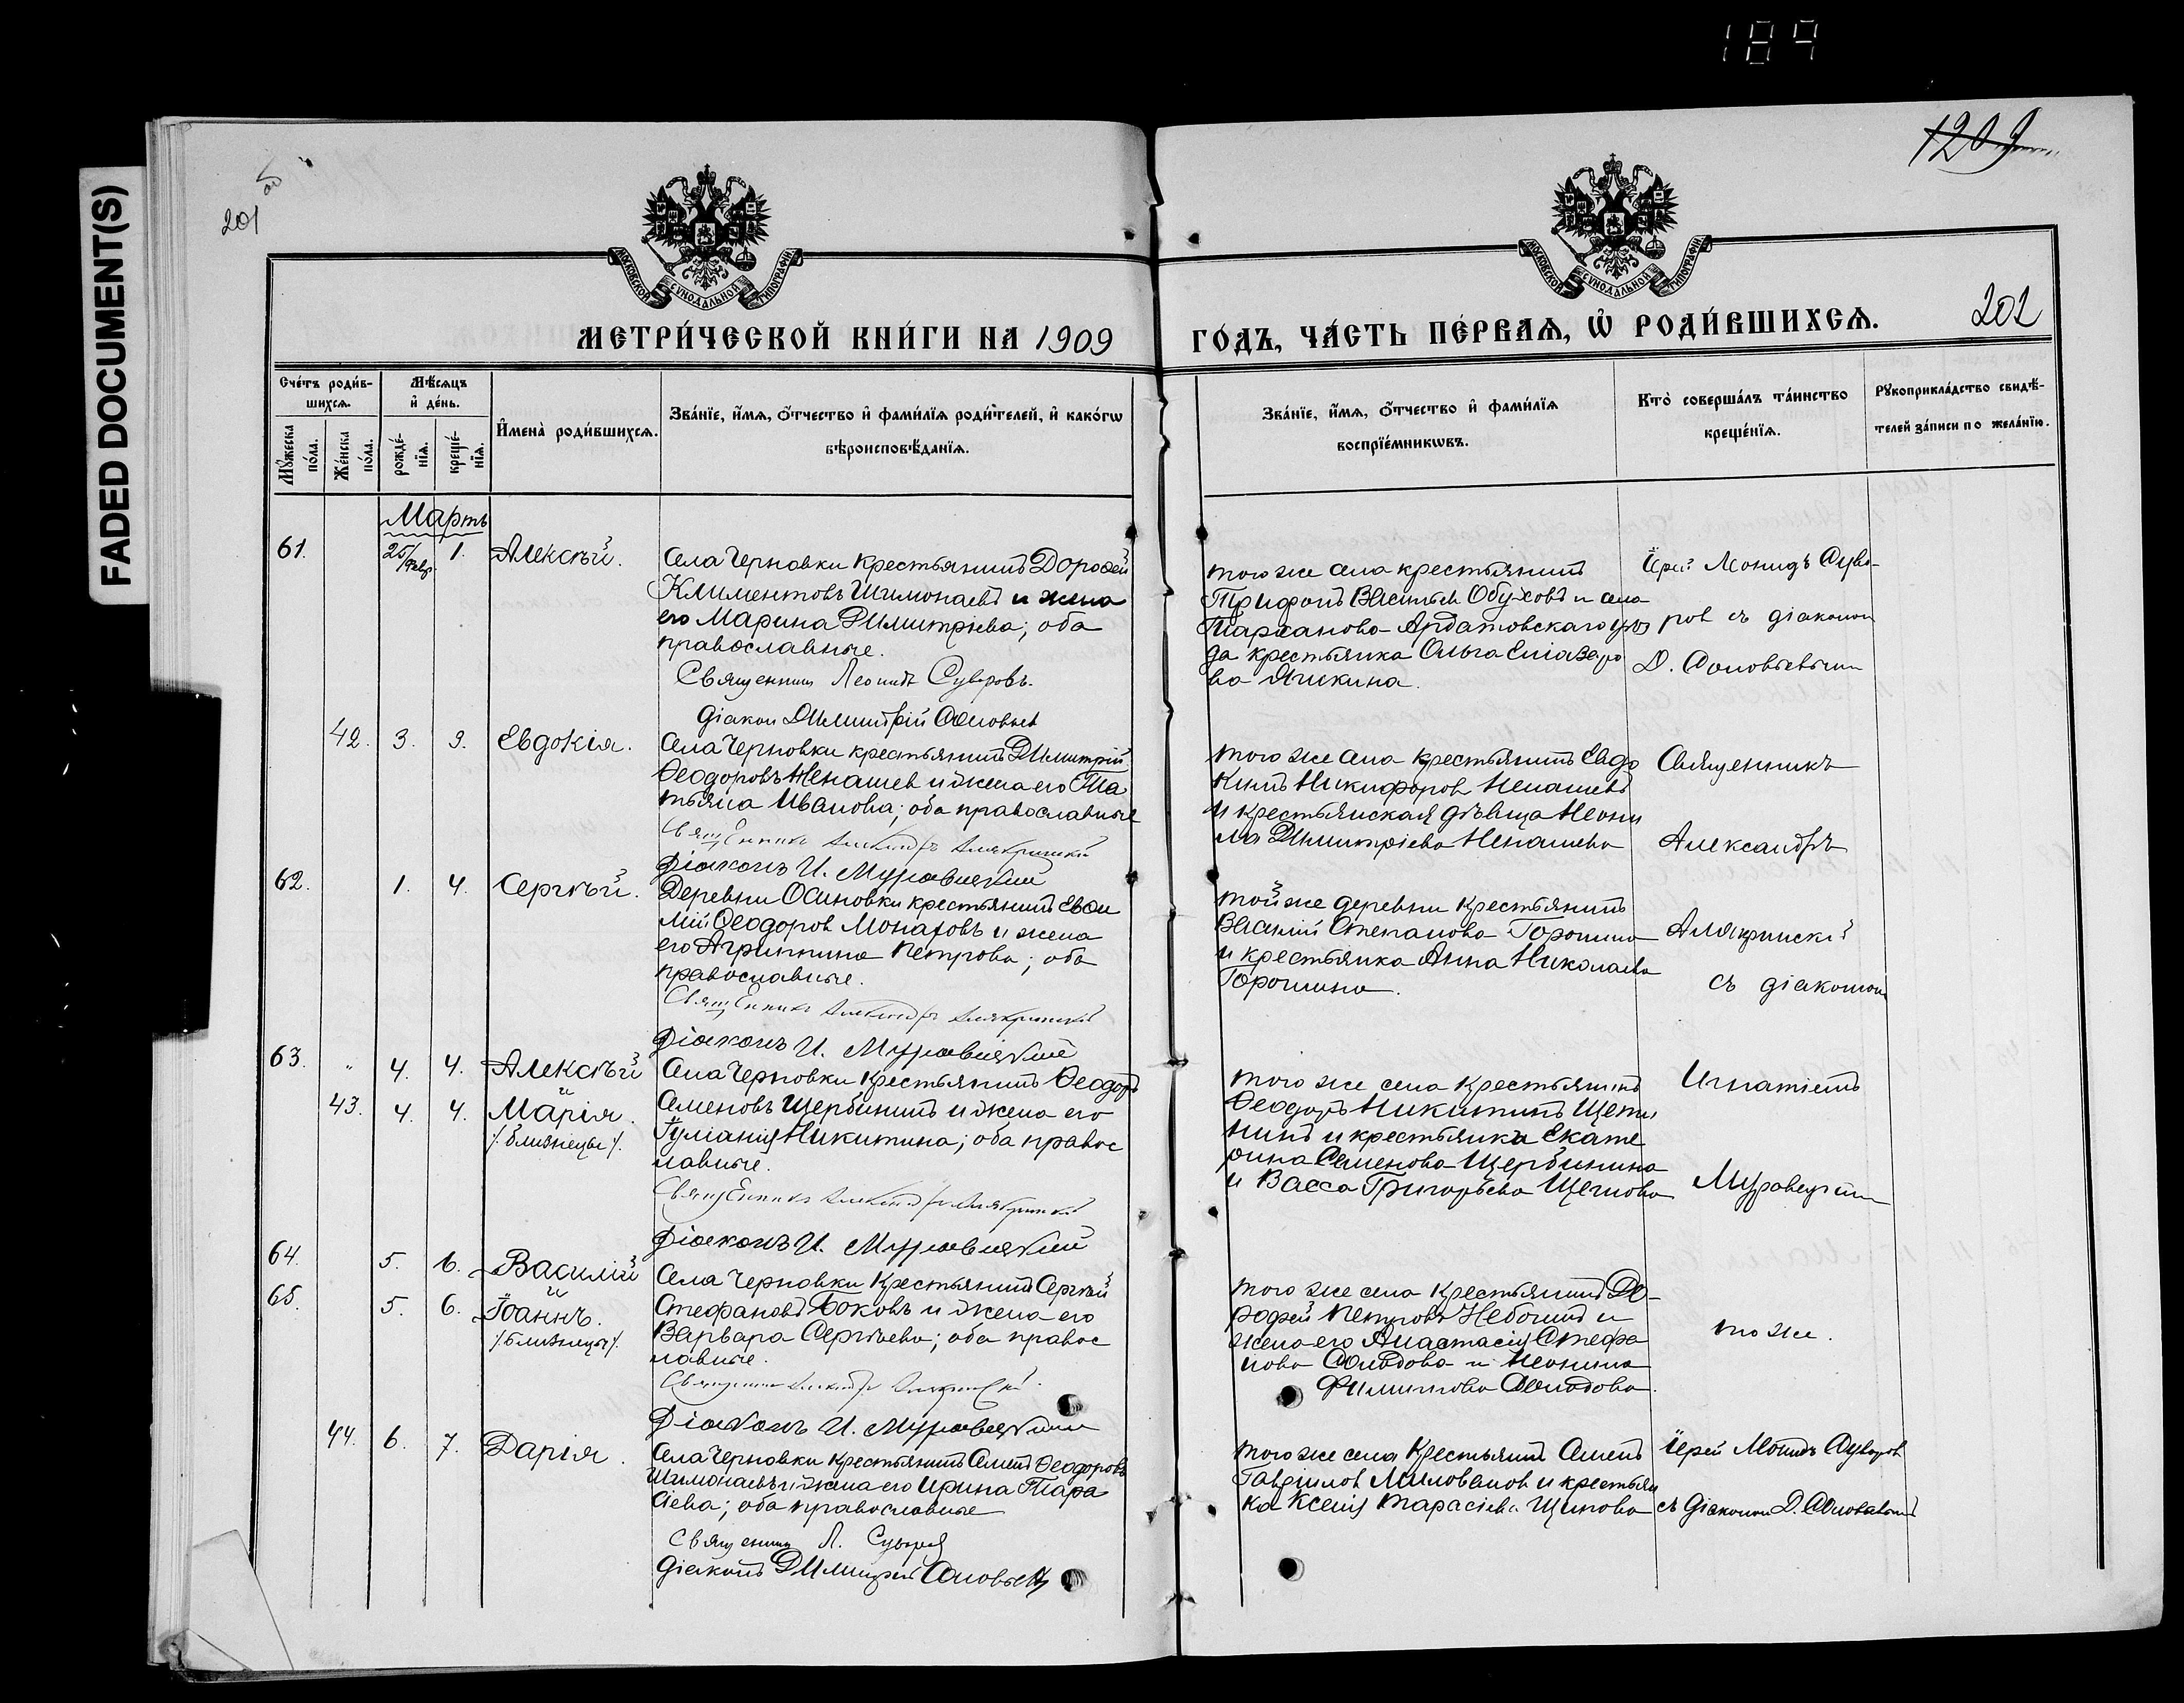 189
FADED DOCUMENT(S)
1209
201
202
МОСКОВСКОЙ СѴНОДАЛЬНОЙ ТИПОГРАФІИ
МОСКОВСКОЙ СѴНОДАЛЬНОЙ ТИПОГРАФІИ
МЕТРИ́ЧЕСКОЙ КНИ́ГИ НА 1909
ГО́ДЪ, ЧА́СТЬ ПЕ́РВАѦ, Ѽ РОДИ́ВШИХСѦ.
Сче́тъ роди́в-
шихсѧ.
Мꙋ́жеска по́ла.
Же́нска по́ла.
Мѣ́сѧцъ
и҆ де́нь.
рожде́-
нїѧ.
креще́-
нїѧ.
И҆мена̀ роди́вшихсѧ.
Зва́нїе, и҆́мѧ, ѻ҆́тчество и҆ фами́лїѧ роди́телей, и҆ како́гѡ
вѣроисповѣ́данїѧ.
Зва́нїе, и҆́мѧ, ѻ҆́тчество и҆ фами́лїѧ
воспрїе́мникѡвъ.
Кто̀ соверша́лъ та́инство
креще́нїѧ.
Рꙋкоприкла́дство свидѣ́-
телей за́писи по жела́нїю.
Мартъ
61. 25/февр 1. Алексѣй.
Села Черновки крестьянинъ Дорофей
Климентовъ Шимонаевъ и жена
его Марина Димитріева; оба
православные.
Священникъ Леонидъ Суворовъ.
Діакон Димитрій Соловьев
того же села крестьянинъ
Трифонъ Васильев Обуховъ и села
Тарханово Ардатовскаго уѣз
да крестьянка Ольга Елиазаро
ва Яшкина.
Іерей Леонидъ Суво-
ров съ діаконом
Д. Соловьевым
42. 3. 3. Евдокія.
Села Черновки крестьянинъ Димитрій
Ѳеодоровъ Ненашев и жена его Та
тьяна Иванова; оба православные
Священникъ Александръ Алякринскій
Діаконъ И. Муравицкий
того же села крестьянинъ Евдо
кимъ Никифоров Ненашевъ
и крестьянская дѣвица Неони
ла Димитріева Ненашева
Священникъ
Александръ
Алякринскій
съ діаконом
Игнатіемъ
62. 1. 4. Сергѣй.
Деревни Осиновки крестьянинъ Евѳи
мій Ѳеодоров Монахов и жена
его Агриппина Петрова; оба
православные.
Священникъ Александръ Алякринскій
Діаконъ И. Муравицкий
той же деревни крестьянинъ
Василій Степанова Горошина
и крестьянка Анна Николаева
Горошина.
63. " 4. 4. Алексѣй
и
43. 4. 4. Марія.
/. близнецы /.
Села Черновки крестьянинъ Ѳеодоръ
Семеновъ Щербининъ и жена его
Іуліанія Никитина; оба правос
лавные.
Священникъ Александръ Алякринскій
Діаконъ И. Муравицкий
того же села крестьянинъ
Ѳеодоръ Никитинъ
и крестьянка Екате
рина Семенова Щербинина
и Васса Григорьева
64. 5. 6. Василій
и
65. 5. 6. Іоаннъ.
/. близнецы /.
Села Черновки крестьянинъ Сергѣй
Стефановъ Боковъ и жена его
Варвара Сергѣева; оба правос
лавные.
Священникъ Александръ Алякринскій
Діаконъ И. Муравицкий
того же села крестьянинъ До-
рофей Петровъ и
жена его Анастасія Стефа
нова Солодова и Неонила
Филиппова Солодова.
то же.
44. 6. 7. Дарія.
Села Черновки крестьянинъ Семенъ Ѳеодоровъ
Шимонаевъ и жена его Ирина Тара
сіева; оба православные
Священникъ Л. Суворов
діаконъ Димитрій Соловьевъ
того же села крестьянинъ Семенъ
Гаврилов Милованов и крестьян
ка Ксенія Тарасіева
Іерей Леонидъ Суворов
съ діаконом Д. Соловьевымъ